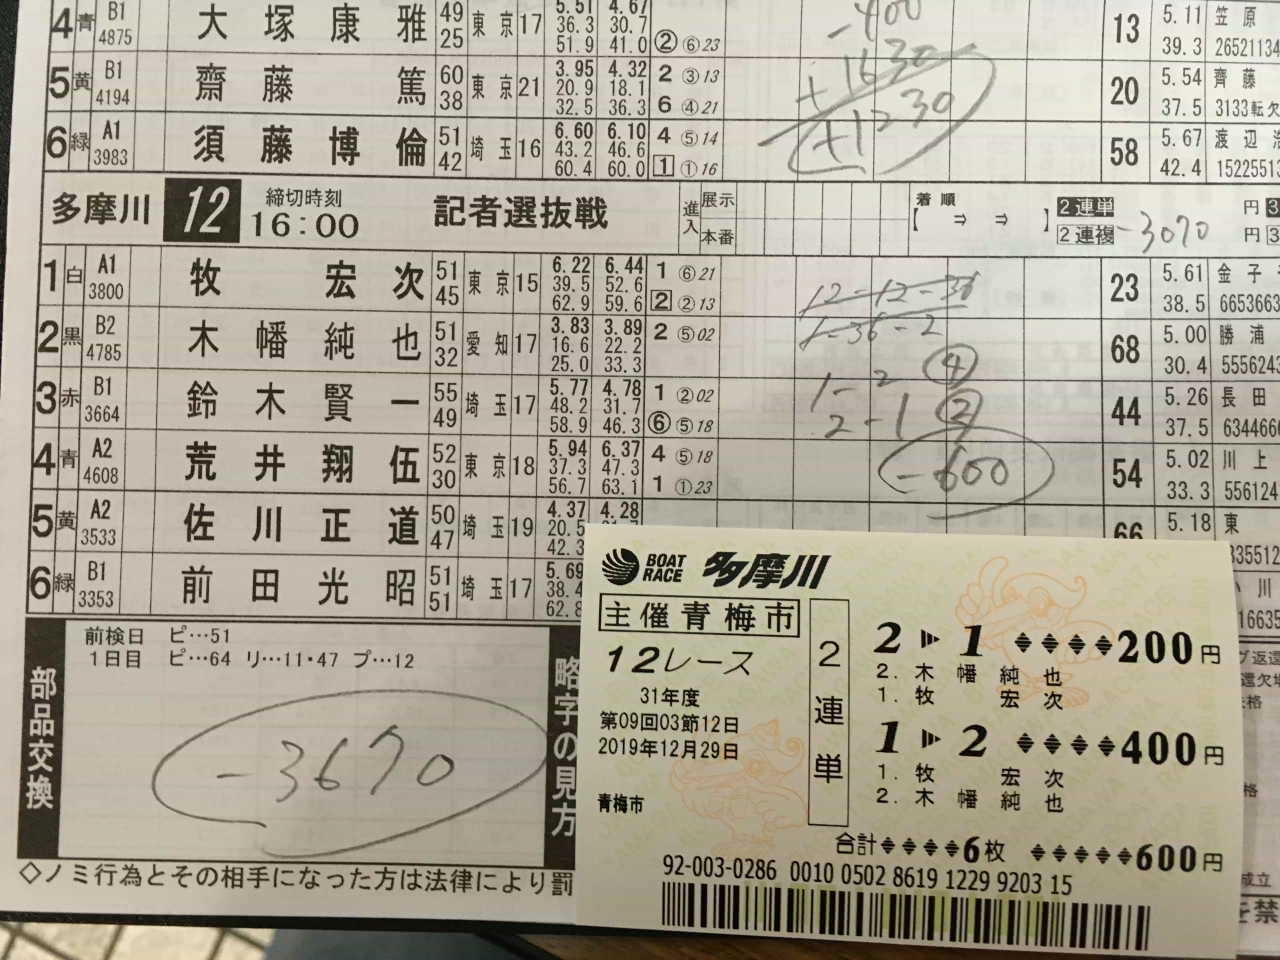 4 青 B1 4875 大塚康雅 49 25 東京 17 5.51 36.3 51.9 4.67 30.7 41.0 ② ⑥23 -400 13 5.11 39.3 笠原 26521134
5 黄 B1 4194 齋藤篤 60 38 東京 21 3.95 20.9 32.5 4.32 18.1 36.3 2 ③13 6 ④21 +1630 20 5.54 37.5 齊藤 3133転欠
6 緑 A1 3983 須藤博倫 51 42 埼玉 16 6.60 43.2 60.4 6.10 46.6 60.0 4 ⑤14 1 ①16 +1230 58 5.67 42.4 渡辺 15225513
多摩川 12 締切時刻 16:00 記者選抜戦 進入 展示 本番 着順 【 ⇒ ⇒ 】 2連単 円 2連複 円 -3070
1 白 A1 3800 牧宏次 51 45 東京 15 6.22 39.5 62.9 6.44 52.6 59.6 1 ⑥21 2 ②13 12-12-36 23 5.61 38.5 金子 6653663
2 黒 B2 4785 木幡純也 51 32 愛知 17 3.83 16.6 25.0 3.89 22.2 33.3 2 ⑤02 1-36-2 68 5.00 30.4 勝浦 5556243
3 赤 B1 3664 鈴木賢一 55 49 埼玉 17 5.77 48.2 58.9 4.78 31.7 46.3 1 ②02 ⑥ ⑤18 1-2 ④ 2-1 ② 44 5.26 37.5 長田 6344666
4 青 A2 4608 荒井翔伍 52 30 東京 18 5.94 37.3 56.7 6.37 47.3 63.1 4 ⑤18 1 ①23 -600 54 5.02 33.3 川上 556124
5 黄 A2 3533 佐川正道 50 47 埼玉 19 4.37 20.5 42.3 4.28 66 5.18 東 335512
6 緑 B1 3353 前田光昭 51 51 埼玉 17 5.69 38.4 62.8 川 16635
部品交換
前検日 ピ…51
1日目 ピ…64 リ…11・47 プ…12
-3670
略字の見方
◇ノミ行為とその相手になった方は法律により罰
を禁
BOAT RACE 多摩川
主催青梅市
12レース
31年度
第09回03節12日
2019年12月29日
青梅市
2連単
2 ▶ 1 200円
2. 木幡純也
1. 牧宏次
1 ▶ 2 400円
1. 牧宏次
2. 木幡純也
合計 6枚 600円
92-003-0286 0010 0502 8619 1229 9203 15